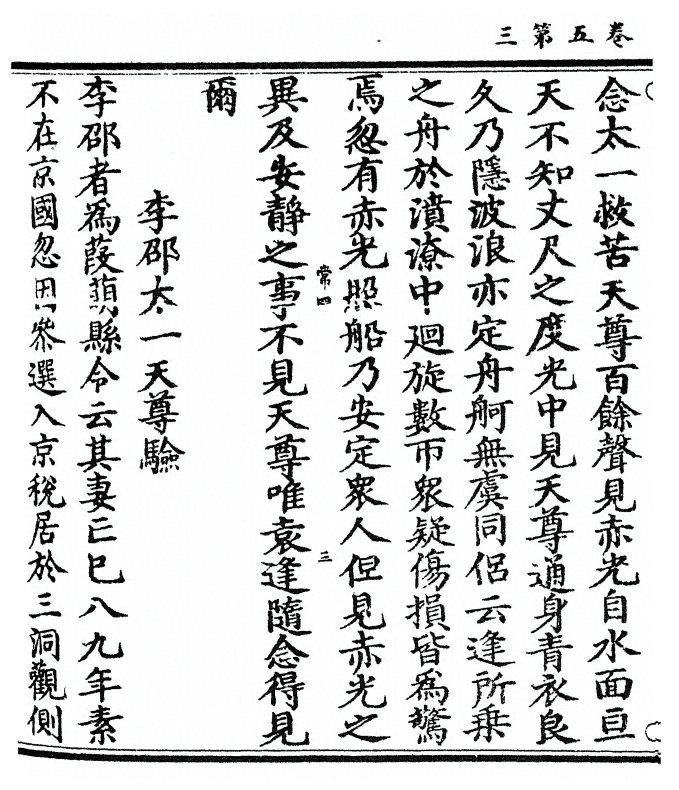 卷五第三
念太一救苦天尊百餘聲見赤光自水面亘
天不知丈尺之度光中見天尊通身青衣良
久乃隱波浪亦定舟舸無虞同侶云逢所乗
之舟於濆潦中廻旋數帀衆疑傷損皆爲驚
焉忽有赤光照船乃安定衆人但見赤光之
異及安靜之事不見天尊唯袁逢隨念得見
常四
三
爾
李邵太一天尊驗
李邵者爲葭萌縣令云其妻亡巳八九年素
不在京國忽因叅選入京稅居於三洞觀側